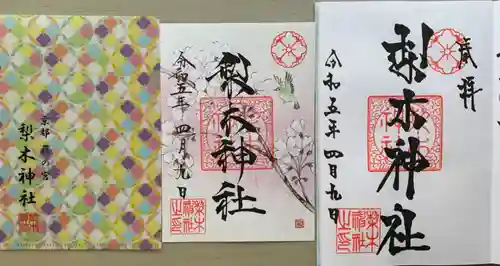 京都 萩の宮
梨木神社
梨木神社
令和五年 四月九日
奉拝
梨木神社
令和五年 四月九日